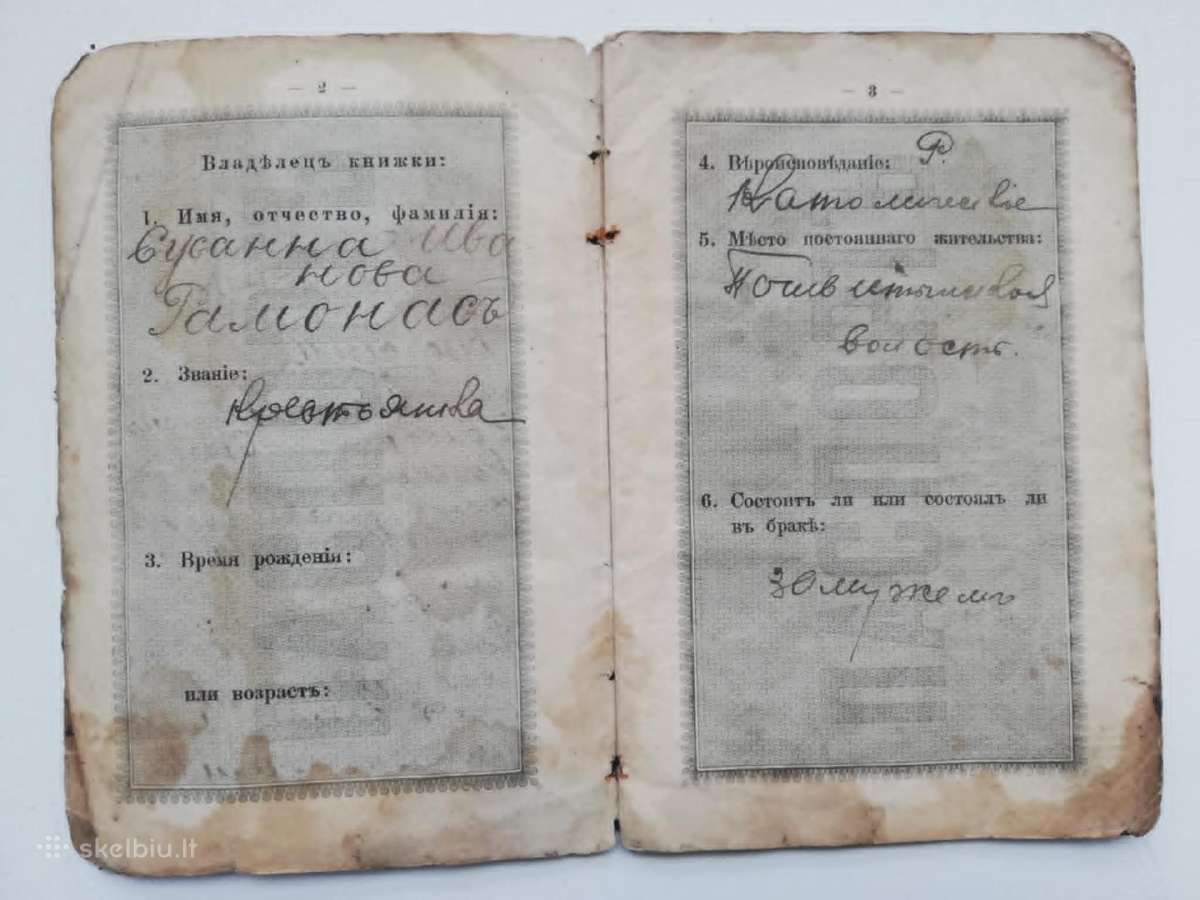 — 2 —
Владѣлецъ книжки:
1. Имя, отчество, фамилія:
Сусанна Ива
нова
Гамонасъ
2. Званіе:
крестьянка
3. Время рожденія:
или возрастъ:
— 3 —
4. Вѣроисповѣданіе: Р.
Католическое
5. Мѣсто постояннаго жительства:
волость.
6. Состоитъ ли или состоялъ ли
въ бракѣ:
замужемъ
skelbiu.lt